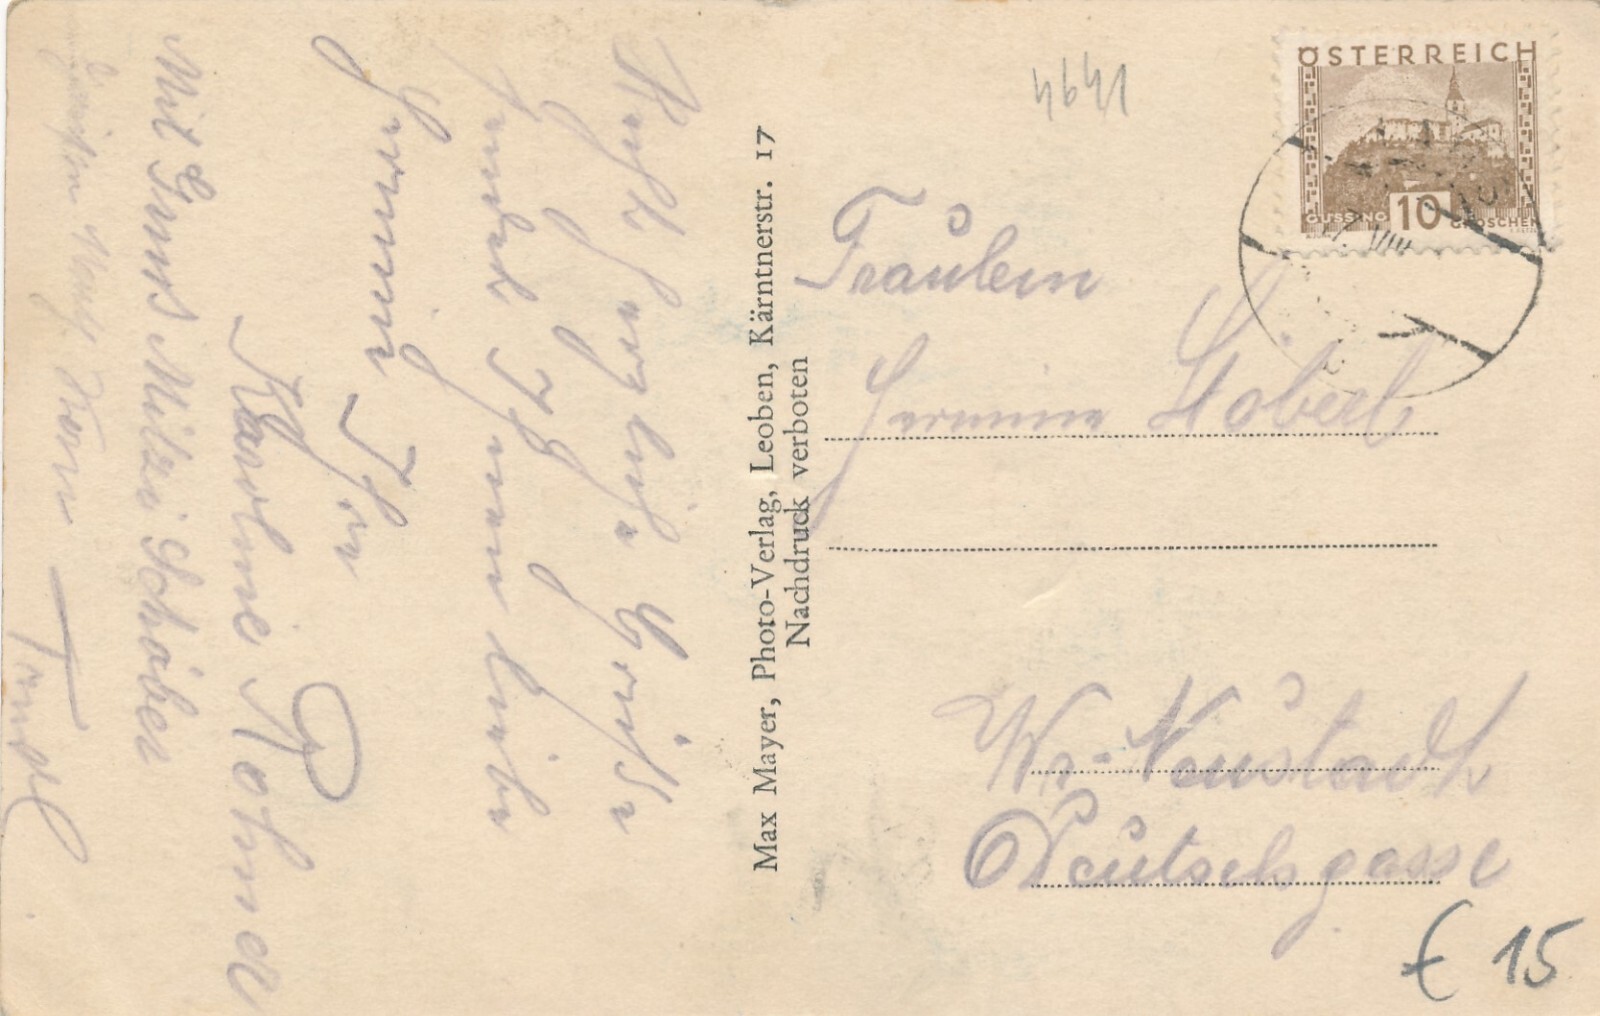 ÖSTERREICH
GÜSSING 10 GROSCHEN
4641
Fräulein
Hermine Stöberl
Wr. Neustadt
Deutschgasse
€ 15
Max Mayer, Photo-Verlag, Leoben, Kärntnerstr. 17
Nachdruck verboten
Recht herzliche Grüße
sendet Ihnen liebe
Hermine
Ihre
Karoline
Mit Gruß Mitzi Schober